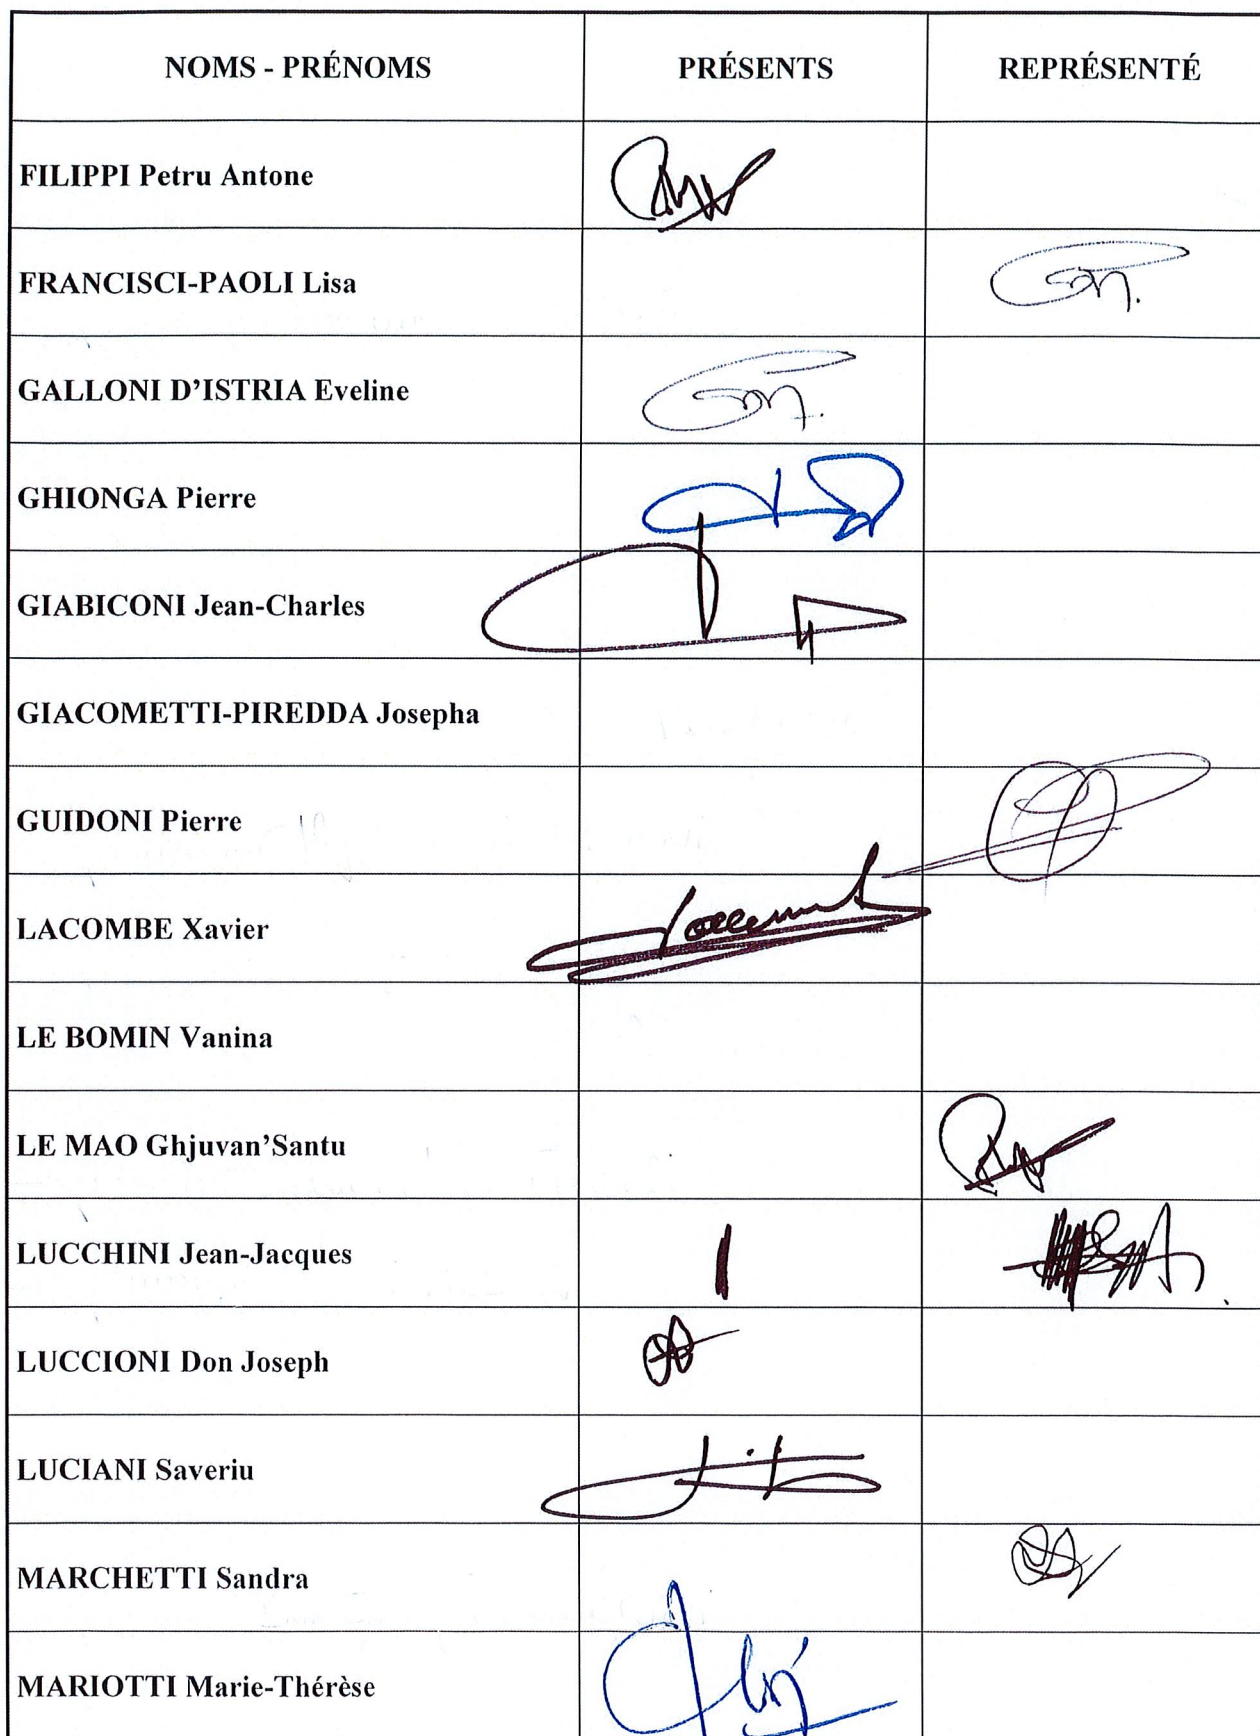 NOMS - PRÉNOMS PRÉSENTS REPRÉSENTÉ
FILIPPI Petru Antone
FRANCISCI-PAOLI Lisa
GALLONI D’ISTRIA Eveline
GHIONGA Pierre
GIABICONI Jean-Charles
GIACOMETTI-PIREDDA Josepha
GUIDONI Pierre
LACOMBE Xavier
LE BOMIN Vanina
LE MAO Ghjuvan’Santu
LUCCHINI Jean-Jacques
LUCCIONI Don Joseph
LUCIANI Saveriu
MARCHETTI Sandra
MARIOTTI Marie-Thérèse